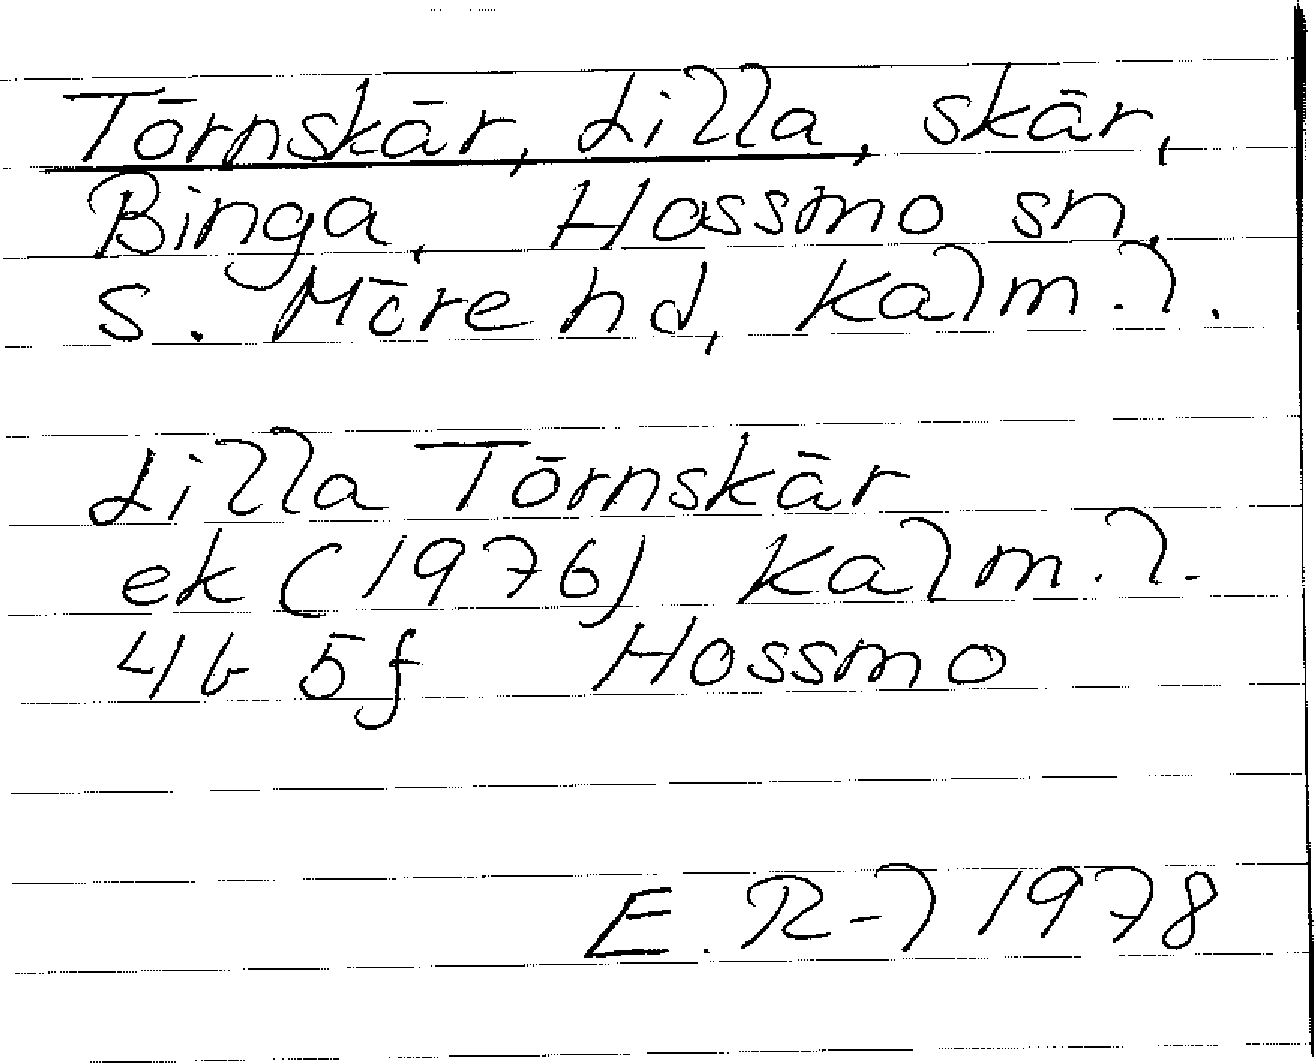 Törnskär, Lilla, skär,
Binga, Hossmo sn,
S. Möre hd, Kalm. l.
Lilla Törnskär
ek (1976) Kalm. l.
4b 5f Hossmo
E. R-l 1978